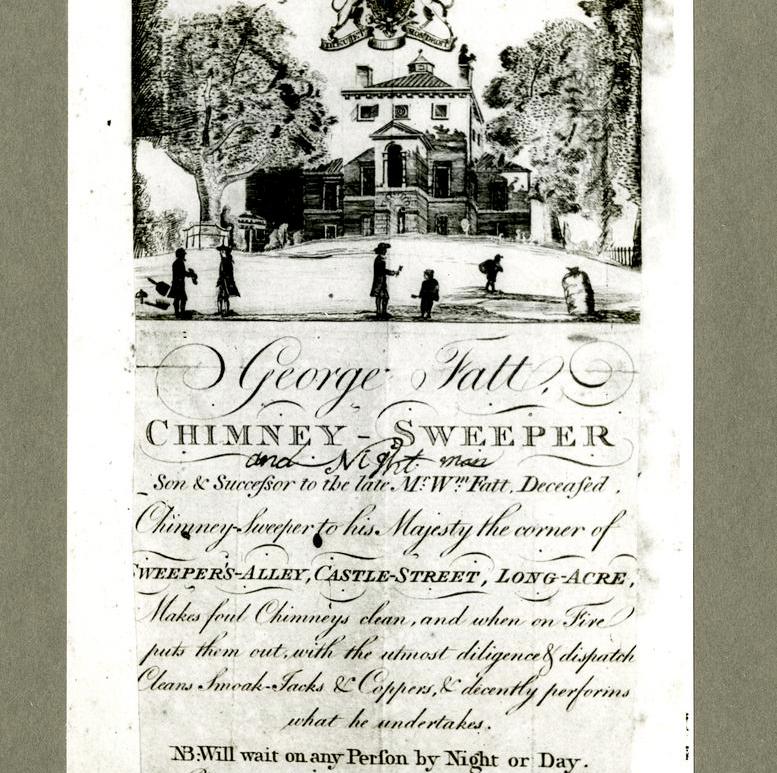 George Fatt,
CHIMNEY-SWEEPER
and Night man
Son & Succeſsor to the late Mr. Wm. Fatt, Deceased,
Chimney-Sweeper to his Majesty the corner of
SWEEPER'S-ALLEY, CASTLE-STREET, LONG-ACRE,
Makes foul Chimneys clean, and when on Fire
puts them out, with the utmost diligence & dispatch
Cleans Smoak-Jacks & Coppers, & decently performs
what he undertakes.
NB: Will wait on any Perſon by Night or Day.